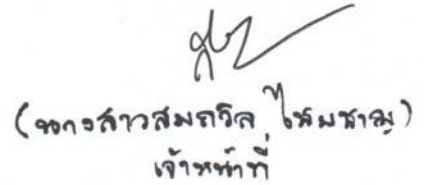 (นางสาวสมถวิล ไชยชาญ)
เจ้าหน้าที่